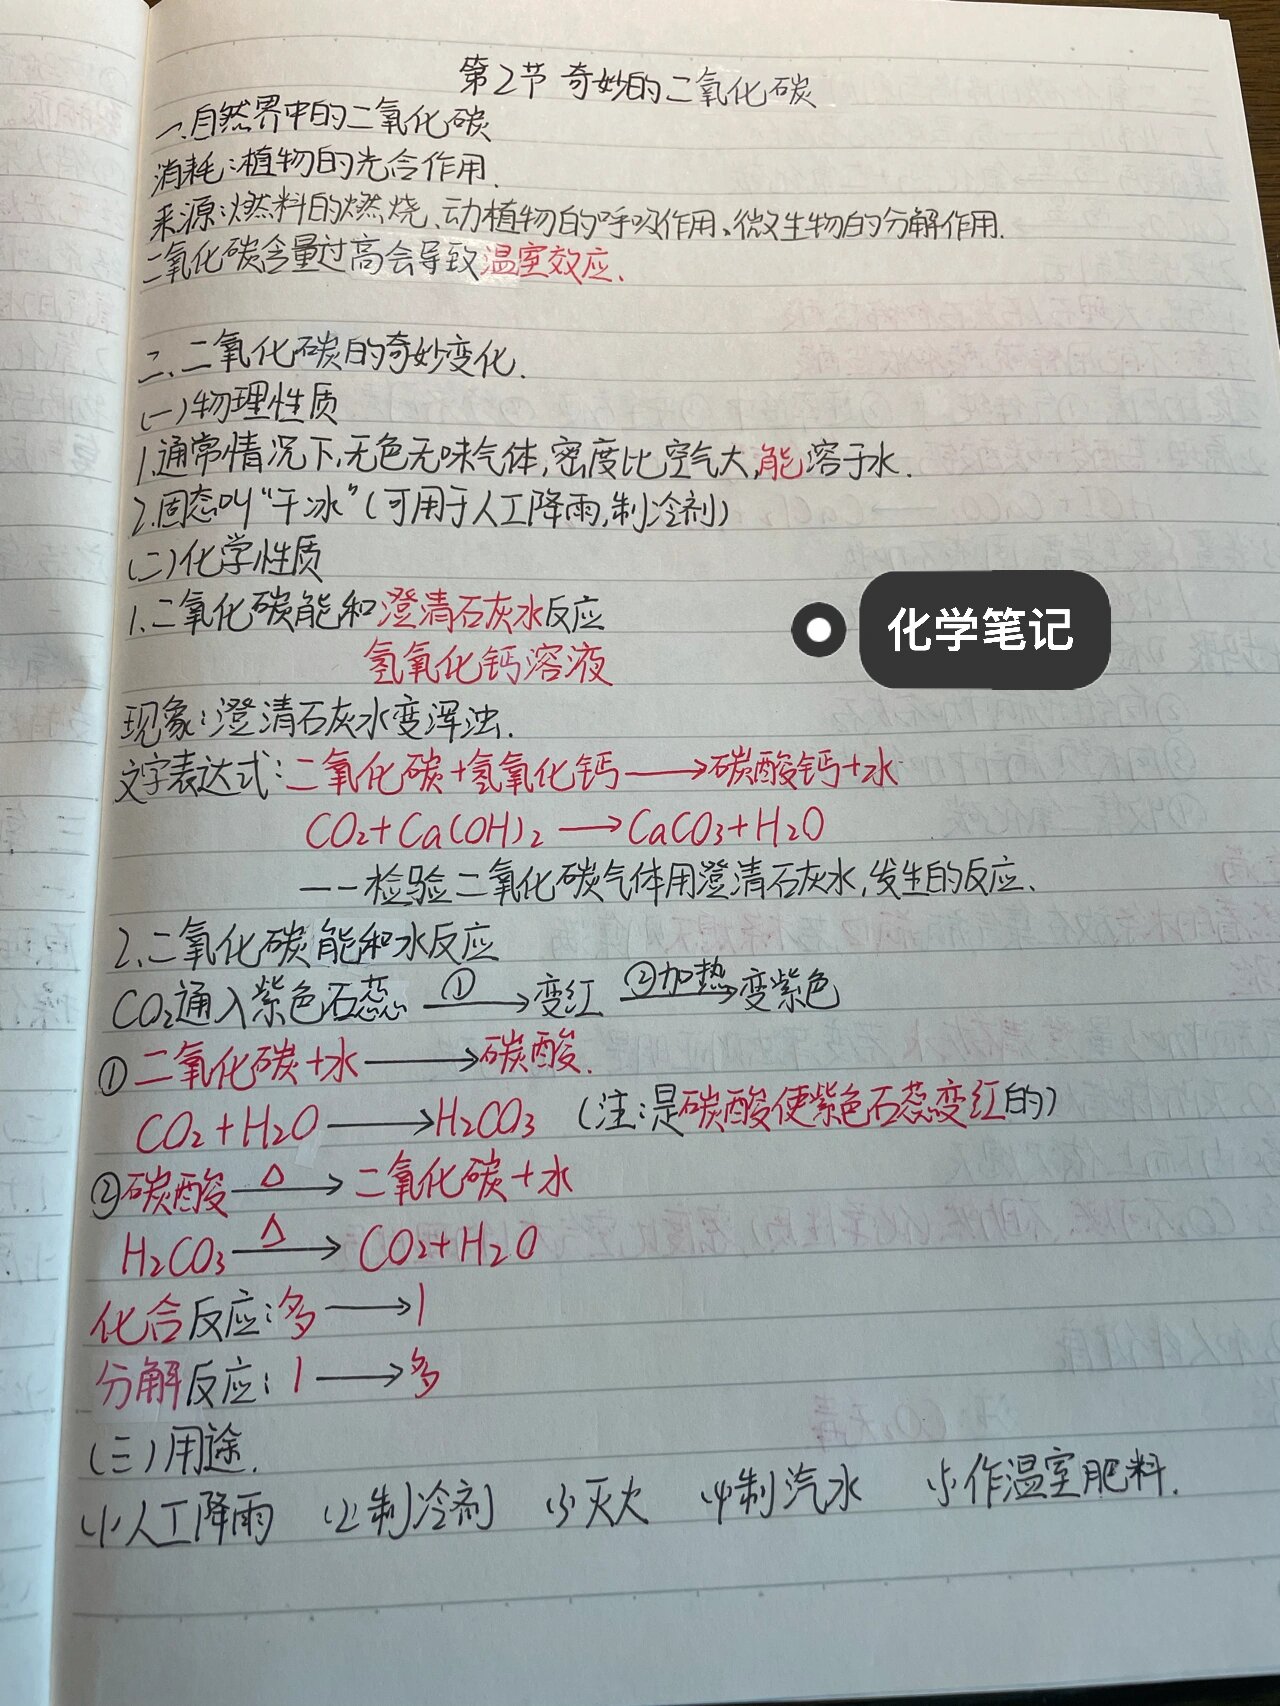 第2节 奇妙的二氧化碳
一、自然界中的二氧化碳
消耗:植物的光合作用.
来源:燃料的燃烧、动植物的呼吸作用、微生物的分解作用.
二氧化碳含量过高会导致温室效应.
二、二氧化碳的奇妙变化.
(一)物理性质
1.通常情况下,无色无味气体,密度比空气大,能溶于水.
2.固态叫“干冰”(可用于人工降雨,制冷剂)
(二)化学性质
1.二氧化碳能和澄清石灰水反应
氢氧化钙溶液
化学笔记
现象:澄清石灰水变浑浊.
文字表达式:二氧化碳+氢氧化钙⟶碳酸钙+水
CO₂+Ca(OH)₂⟶CaCO₃+H₂O
——检验二氧化碳气体用澄清石灰水,发生的反应.
2.二氧化碳能和水反应
CO₂通入紫色石蕊 ①⟶ 变红 ②加热⟶ 变紫色
①二氧化碳+水⟶碳酸.
CO₂+H₂O⟶H₂CO₃ (注:是碳酸使紫色石蕊变红的)
②碳酸 △⟶ 二氧化碳+水
H₂CO₃ △⟶ CO₂+H₂O
化合反应:多⟶1
分解反应:1⟶多
(三)用途.
(1)人工降雨 (2)制冷剂 (3)灭火 (4)制汽水 (5)作温室肥料.